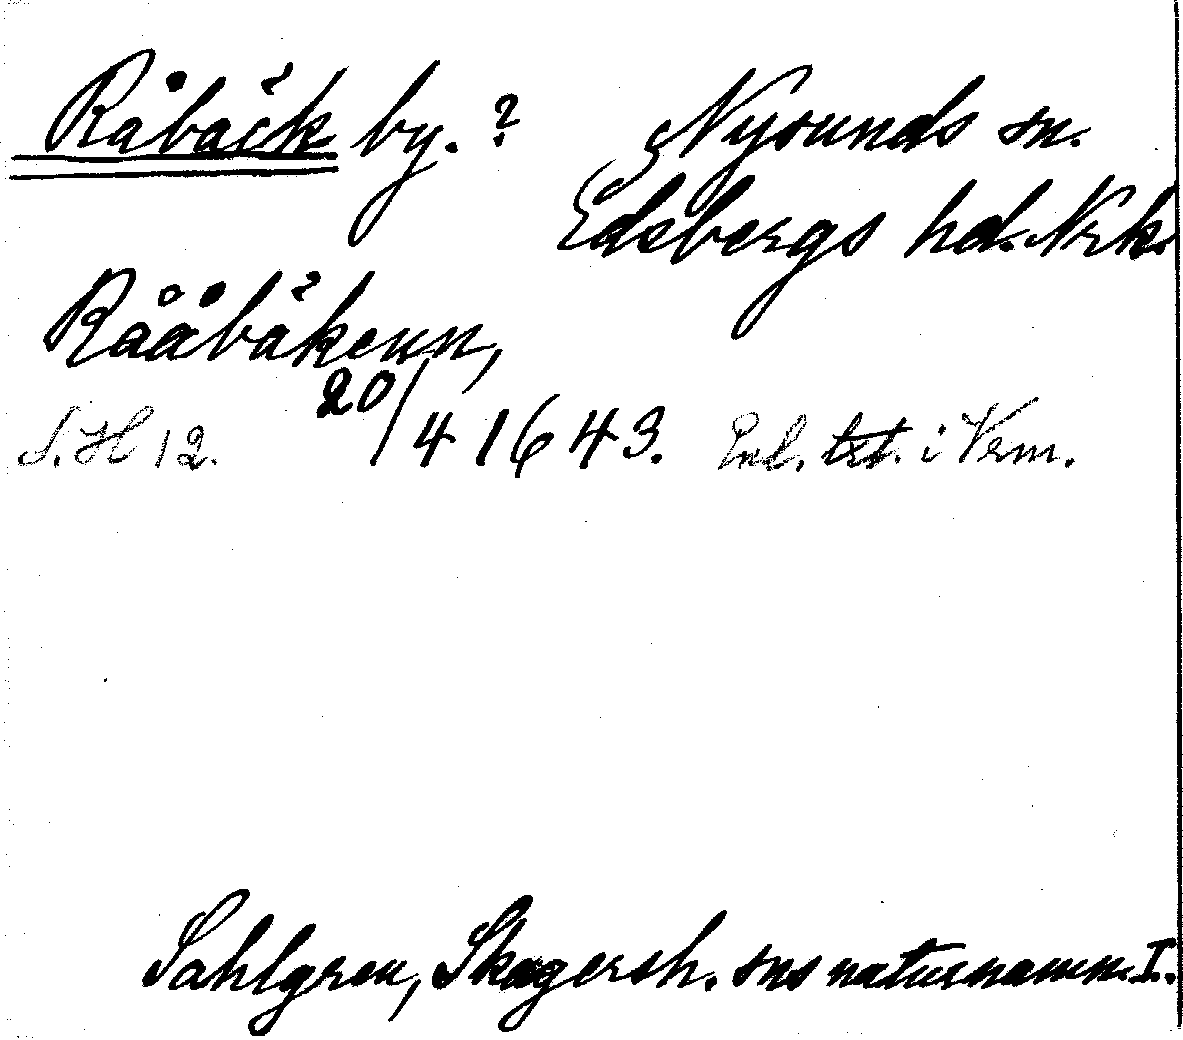 Råbäck by. ? Nysunds sn.
Edsbergs hd. Nrk.
Rååbäkenn,
S. H 12. 20/4 1643. Enl. txt. i Verm.
Sahlgren, Skagersh. sns naturnamn. I.